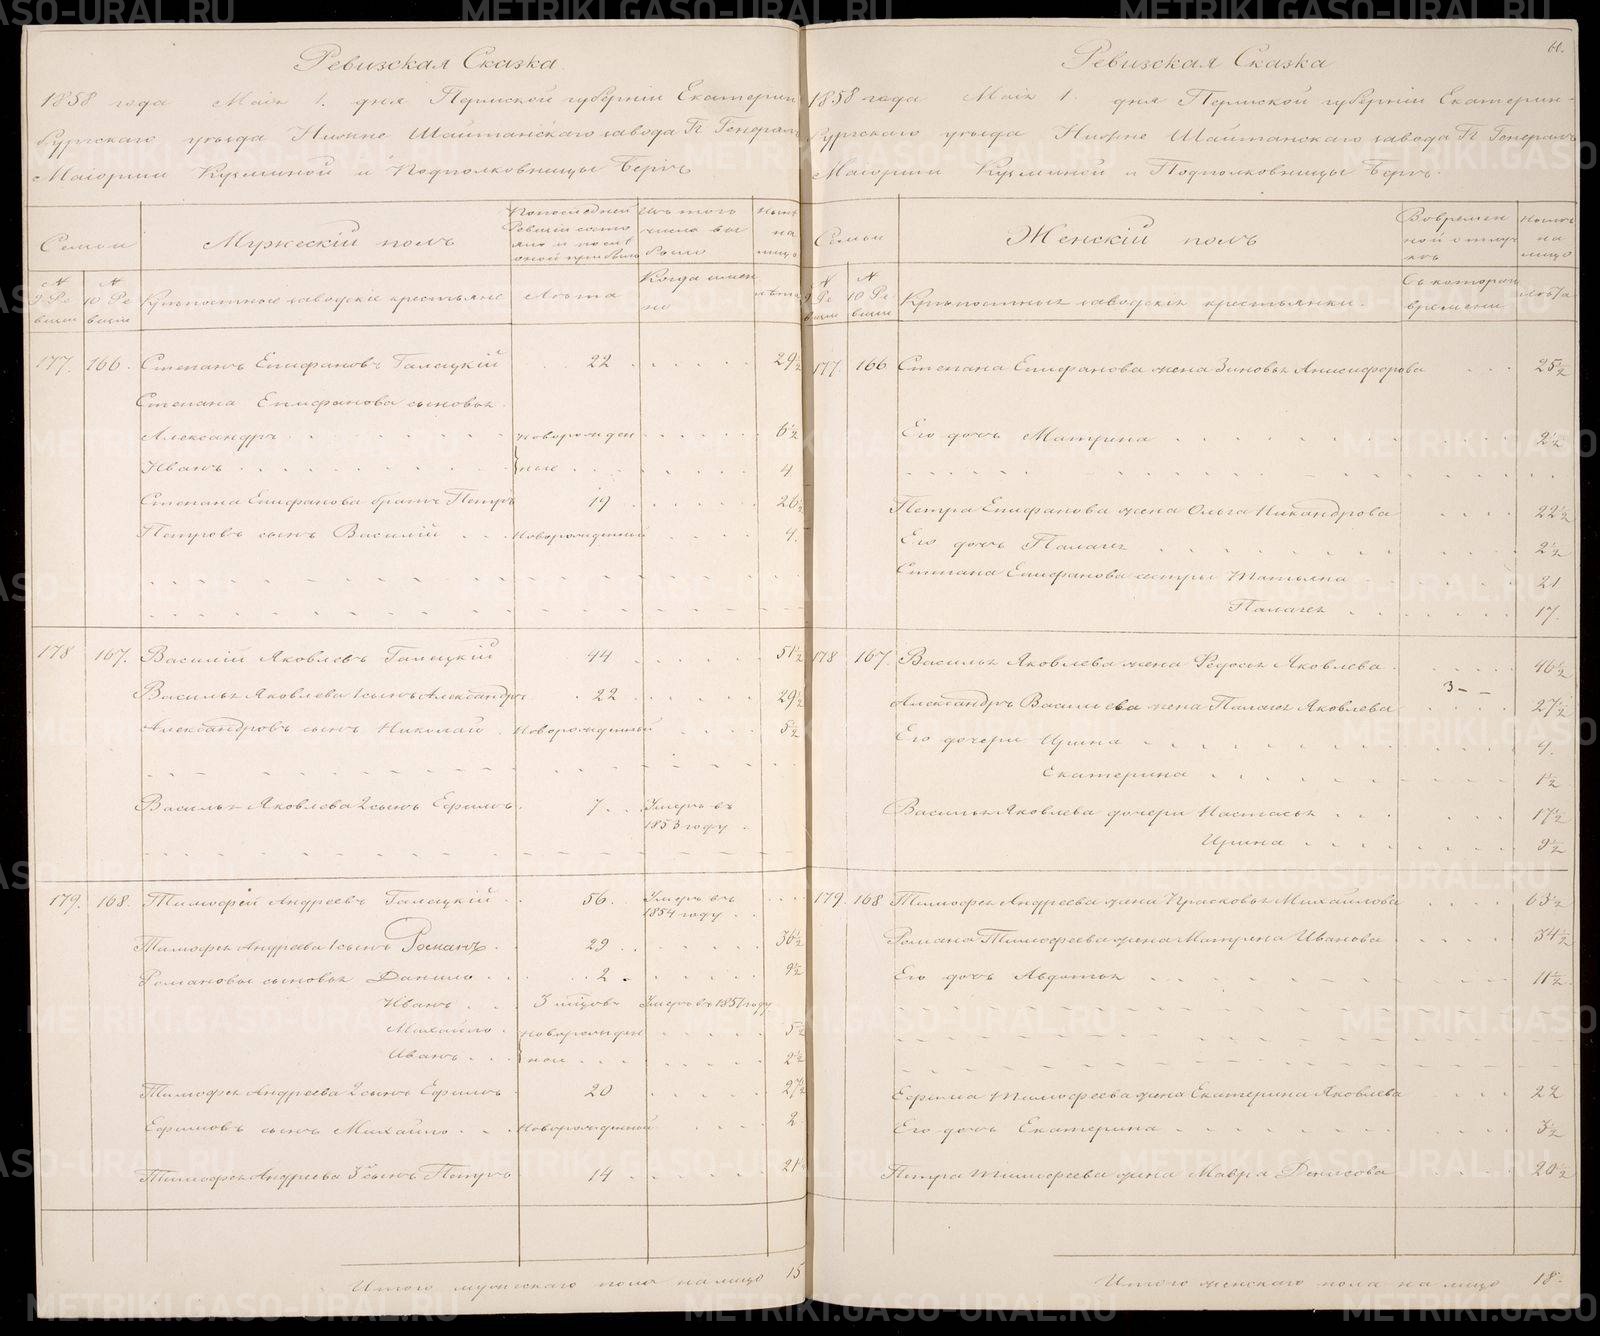 Ревизская Сказка
1858 года Маія 1. дня Пермской губерніи Екатерин
бургского уѣзда Нижне Шайтанского завода Гг. Генералъ
Маіорши Кузминой и Подполковницы Бергъ
Семьи
Мужескій полъ
По последней Ревизіи состояло и послѣ оной прибыло
Изъ того числа выбыло
Нынѣ на лицо
№ 9 Ревизіи
№ 10 Ревизіи
Крѣпостные заводскіе крестьяне
Лѣта
Когда именно
лѣта
177. 166. Степанъ Епифановъ Галецкій 22 29½
Степана Епифанова сыновья
Александръ новорожден 6½
Иванъ ные 4
Степана Епифанова братъ Петръ 19 26½
Петровъ сынъ Василій Новорожденный 4.
178 167. Василій Яковлевъ Галецкій 44 51½
Василья Яковлева 1 сынъ Александръ 22 29½
Александровъ сынъ Николай Новорожденный 5½
Василья Яковлева 2 сынъ Ефимъ 7 Умеръ въ
1853 году
179. 168. Тимофей Андреевъ Галецкій 56. Умеръ въ
1854 году
Тимофея Андреева 1 сынъ Романъ 29 36½
Романовы сыновья Данило 2 9½
Иванъ 3 мѣсяцовъ Умеръ въ 1851 году
Михайло новорожден 5½
Иванъ ные 2½
Тимофея Андреева 2 сынъ Ефимъ 20 27½
Ефимовъ сынъ Михайло Новорожденный 2
Тимофея Андреева 3 сынъ Петръ 14 21½
Итого мужескаго пола на лицо 15
60.
Ревизская Сказка
1858 года Маія 1. дня Пермской губерніи Екатерин-
бургского уѣзда Нижне Шайтанского завода Гг. Генералъ
Маіорши Кузминой и Подполковницы Бергъ.
Семьи
Женскій полъ
Во временной отлучкѣ
Нынѣ на лицо
№ 9 Ревизіи
№ 10 Ревизіи
Крѣпостныя заводскія крестьянки.
Съ котораго времени
лѣта
177. 166 Степана Епифанова жена Зиновья Анисифорова 25½
Его дочь Матрина 2½
Петра Епифанова жена Ольга Никандрова 22½
Его дочь Палагея 2½
Степана Епифанова сестры Татьяна 21
Палагея 17.
178 167. Василья Яковлева жена Федосья Яковлева 46½
3 - -
Александръ Васильева жена Палагея Яковлева 27½
Его дочери Ирина 9.
Екатерина 1½
Василья Яковлева дочери Настасья 17½
Ирина 9½
179. 168 Тимофея Андреева жена Прасковья Михайлова 63½
Романа Тимофеева жена Матрина Иванова 34½
Его дочь Авдотья 11½
Ефима Тимофеева жена Екатерина Яковлева 22
Его дочь Екатерина 3½
Петра Тимофеева жена Мавра Денисова 20½
Итого женскаго пола на лицо 18
METRIKI.GASO-URAL.RU